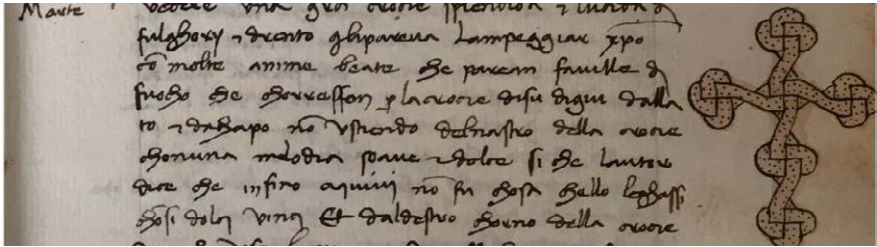 Marte vedere una grā crocie splendida & lucida d
fulghori & drento gli pareva lampeggiar xp̄o
cō molte anime beate che parean faville d
fuocho che chorresson p la crocie disu digiu dalla
to & dachapo nō uscendo delnastro della crocie
chonuna melodia soave & dolce si che lautor
dice che infino aquivi nō fu chosa chello leghassi
chōsi dolci vinci Et daldestro chorno della crocie